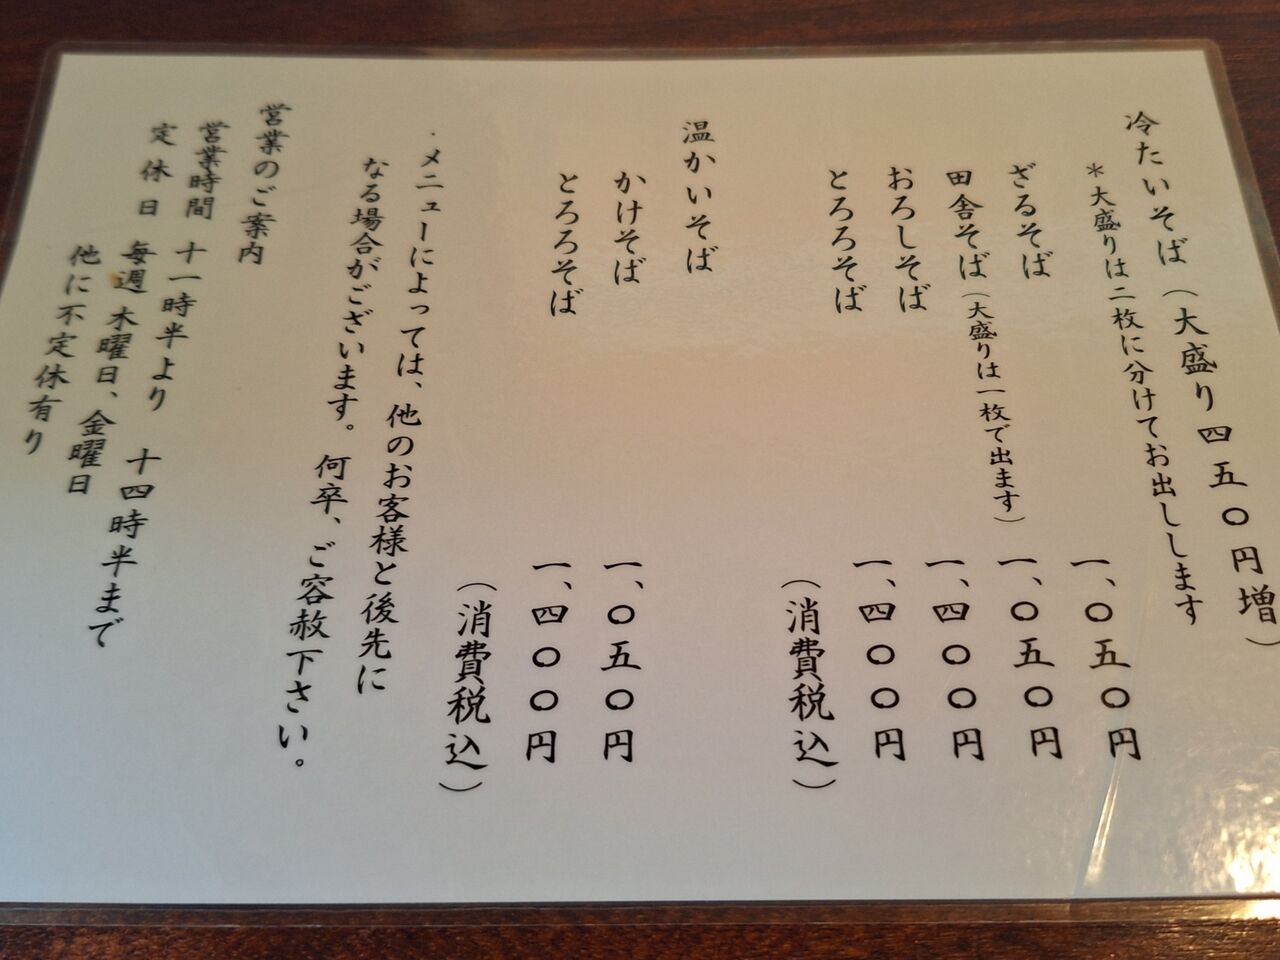 冷たいそば（大盛り四五〇円増）
＊大盛りは二枚に分けてお出しします
ざるそば 一、〇五〇円
田舎そば（大盛りは一枚で出ます） 一、〇五〇円
おろしそば 一、四〇〇円
とろろそば 一、四〇〇円
（消費税込）
温かいそば
かけそば 一、〇五〇円
とろろそば 一、四〇〇円
（消費税込）
・メニューによっては、他のお客様と後先に
なる場合がございます。何卒、ご容赦下さい。
営業のご案内
営業時間 十一時半より 十四時半まで
定休日 毎週 木曜日、金曜日
他に不定休有り